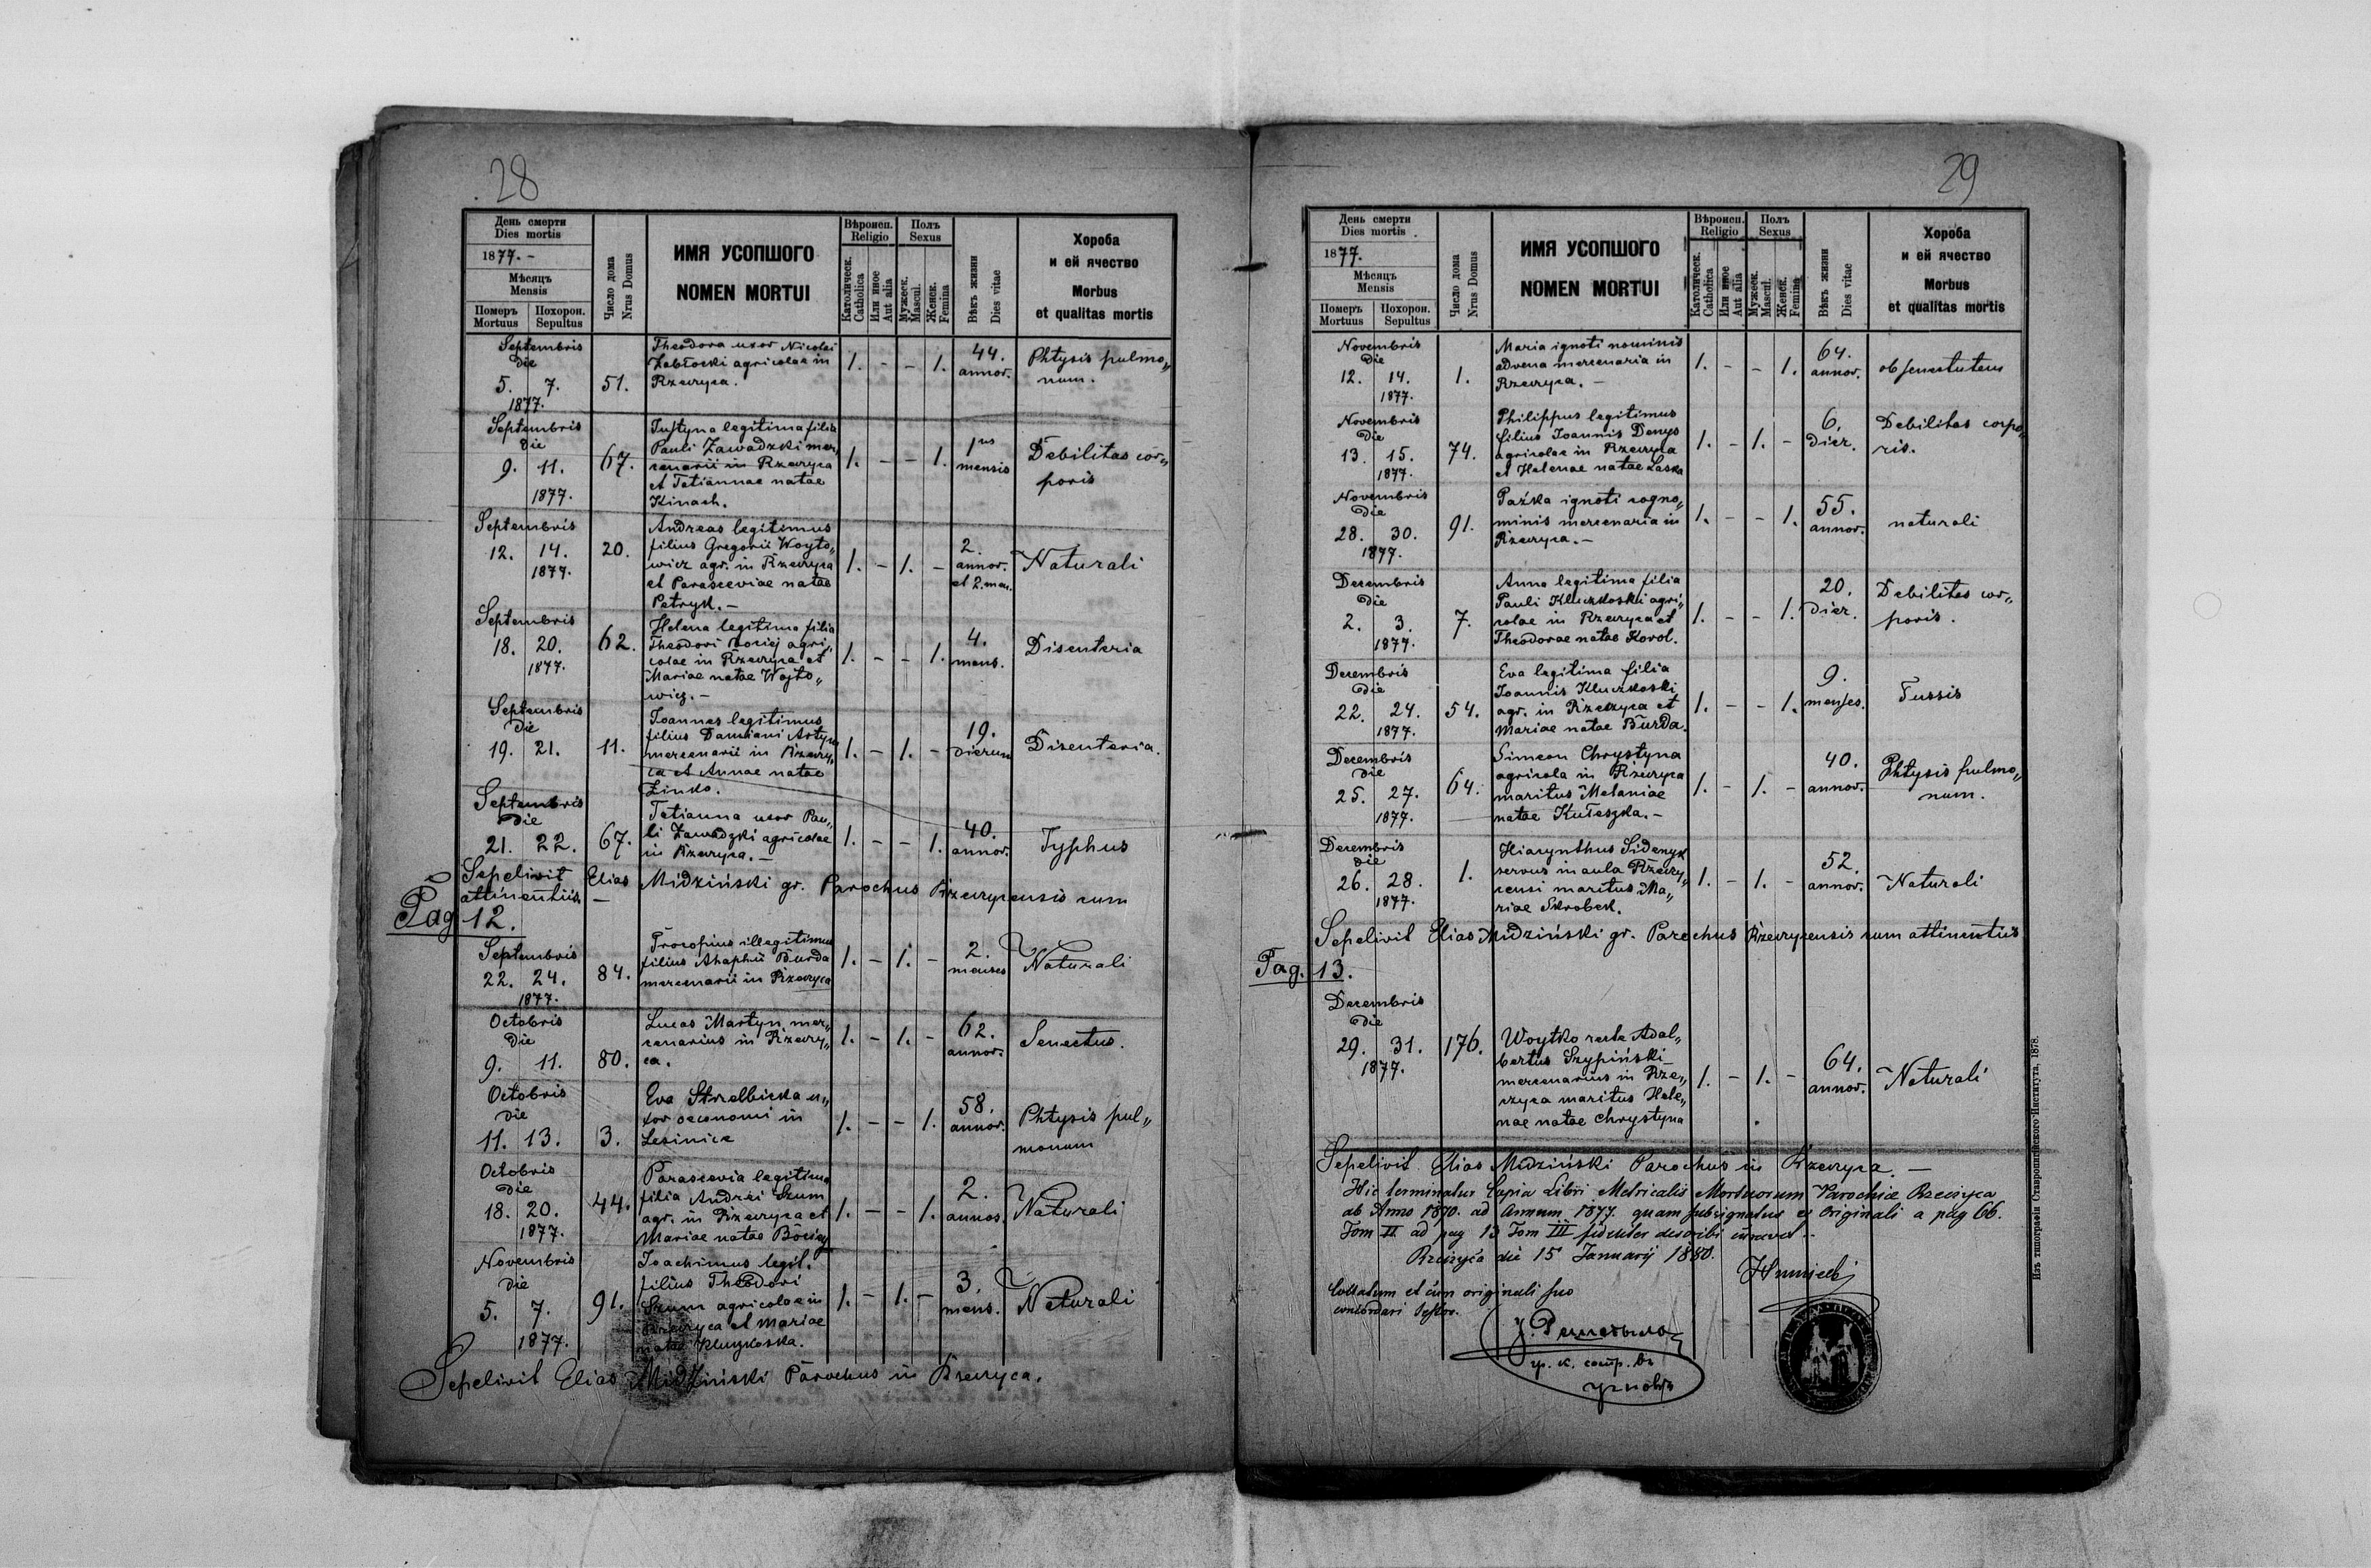 28
День смерти
Dies mortis
1877. -
Мѣсяцъ
Mensis
Померъ Похорон.
Mortuus Sepultus
Число дома
Nrus Domus
ИМЯ УСОПШОГО
NOMEN MORTUI
Вѣроисп.
Religio
Католическ.
Catholica
Или иное
Aut alia
Полъ
Sexus
Мужеск.
Mascul.
Женск.
Femina
Вѣкъ жизни
Dies vitae
Хороба
и ей ячество
Morbus
et qualitas mortis
Septembris
die
5. 7.
1877.
51.
Theodora uxor Nicolai
Zabłocki agricolae in
Rzeczyca.
1. - - 1.
44.
annor.
Phtysis pulmo„
num.
Septembris
die
9. 11.
1877.
67.
Justyna legitima filia
Pauli Zawadzki mer„
cenarii in Rzeczyca
et Tatiannae natae
Kinach.
1. - - 1.
1ns
mensis
Debilitas cor„
poris
Septembris
12. 14.
1877.
20.
Andreas legitimus
filius Gregorii Woyto„
wicz agr. in Rzeczyca
et Parasceviae natae
Petryk. -
1. - 1. -
2.
annor.
et 2. men.
Naturali
Septembris
18. 20.
1877.
62.
Helena legitima filia
Theodori agri„
colae in Rzeczyca et
Mariae natae Wojto„
wicz. -
1. - - 1.
4.
mens.
Disenteria
Septembris
die
19. 21.
11.
Joannes legitimus
filius Damiani
mercenarii in Rzeczy„
ca et Annae natae
Zinko.
1. - 1. -
19.
dierum
Disenteria.
Septembris
die
21. 22.
67.
Tatianna uxor Pau„
li Zawadzki agricolae
in Rzeczyca. -
1. - - 1.
40.
annor.
Typhus
Sepelivit Elias Midziński gr. Parochus Rzeczycensis cum
attinentiis. -
Pag 12.
Septembris
22. 24.
1877.
84.
Procopius illegitimus
filius Ahaphii Burda
mercenarii in Rzeczyca
1. - 1. -
2.
menses
Naturali
Octobris
die
9. 11.
80.
Lucas Martyn mer„
cenarius in Rzeczy„
ca.
1. - 1. -
62.
annor.
Senectus.
Octobris
die
11. 13.
3.
Eva Strzelbicka u„
xor oeconomi in
Lesinice
1. - - 1.
58.
annor.
Phtysis pul„
monum
Octobris
die
18. 20.
1877.
44.
Parascevia legitima
filia Andrei Szum
agr. in Rzeczyca et
Mariae natae
1. - - 1.
2.
annos.
Naturali
Novembris
die
5. 7.
1877.
91.
Joachimus legit.
filius Theodori
Szum agricolae in
Rzeczyca et Mariae
natae Kluczkoska.
1. - 1. -
3.
mens.
Naturali
Sepelivit Elias Midziński Parochus in Rzeczyca.
29
День смерти
Dies mortis
1877.
Мѣсяцъ
Mensis
Померъ Похорон.
Mortuus Sepultus
Число дома
Nrus Domus
ИМЯ УСОПШОГО
NOMEN MORTUI
Вѣроисп.
Religio
Католическ.
Catholica
Или иное
Aut alia
Полъ
Sexus
Мужеск.
Mascul.
Женск.
Femina
Вѣкъ жизни
Dies vitae
Хороба
и ей ячество
Morbus
et qualitas mortis
Novembris
die
12. 14.
1877.
1.
Maria ignoti nominis
advena mercenaria in
Rzeczyca. -
1. - - 1.
64.
annor.
ob senectutem
Novembris
die
13. 15.
1877.
74.
Philippus legitimus
filius Joannis Denys
agricolae in Rzeczyca
et Helenae natae Laska
1. - 1. -
6.
dier.
Debilitas corpo„
ris.
Novembris
die
28. 30.
1877.
91.
Paźka ignoti cogno„
minis mercenaria in
Rzeczyca. -
1. - - 1.
55.
annor.
naturali
Decembris
die
2. 3.
1877.
7.
Anna legitima filia
Pauli Kluczkoski agri„
colae in Rzeczyca et
Theodorae natae Korol.
1. - - 1.
20.
dier.
Debilitas cor„
poris.
Decembris
die
22. 24.
1877.
54.
Eva legitima filia
Joannis Kluczkoski
agr. in Rzeczyca et
Mariae natae Burda.
1. - - 1.
9.
menses.
Tussis
Decembris
die
25. 27.
1877.
64.
Simeon Chrystyna
agricola in Rzeczyca
maritus Melaniae
natae Kułeszka. -
1. - 1. -
40.
annor.
Phtysis pulmo„
num.
Decembris
die
26. 28.
1877.
1.
Hiacynthus Sidenyk
servus in aula Rzeczy„
censi maritus Ma„
riae Skrobek.
1. - 1. -
52.
annor.
Naturali
Sepelivit Elias Midziński gr. Parochus Rzeczycensis cum attinentiis
Pag. 13.
Decembris
die
29. 31.
1877.
176.
Woytko recte Adal„
bertus Szypiński
mercenarius in Rze„
czyca maritus Hele„
nae natae Chrystyna
1. - 1. -
64.
annor.
Naturali
Sepelivit Elias Midziński Parochus in Rzeczyca. -
Hic terminatur Copia Libri Metricalis Mortuorum Parochiae Rzeczyca
ab Anno 1870. ad Annum 1877. quam subsignatus ex Originali a pag 66.
Tom II ad pag 13 Tom III fideliter describi curavit. -
Rzeczyca die 15 Januarij 1880.
Collatum et cum originali suo
concordari testor.
гр. к. сотр. въ
Изъ типографіи Ставропигійского Института, 1878.